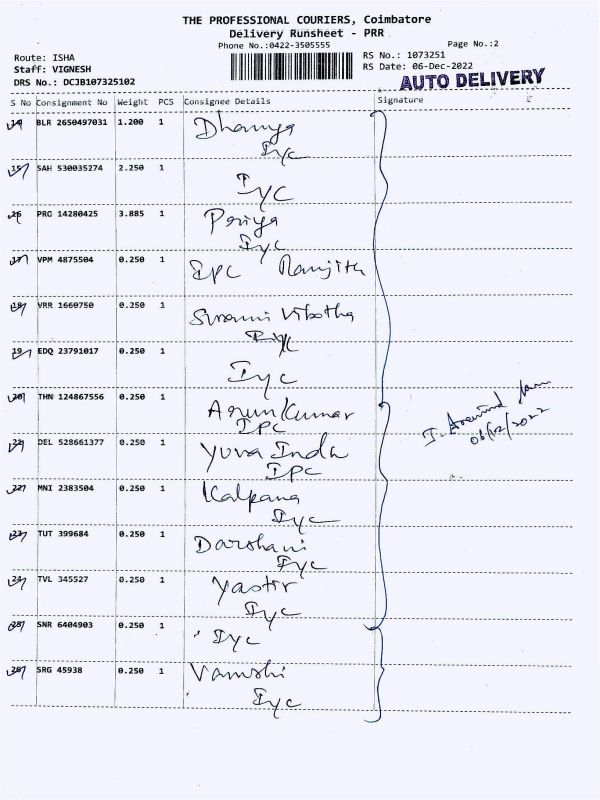 THE PROFESSIONAL COURIERS, Coimbatore
Delivery Runsheet - PRR
Phone No.:0422-3505555
Page No.:2
Route: ISHA
Staff: VIGNESH
DRS No.: DCJB107325102
RS No.: 1073251
RS Date: 06-Dec-2022
AUTO DELIVERY
S No Consignment No Weight PCS Consignee Details Signature
14 BLR 2650497031 1.200 1 Dhanya
Iyc
15 SAH 530035274 2.250 1
Iyc
16 PRO 14280425 3.885 1 Priya
Iyc
17 VPM 4875504 0.250 1 IPC Ranjith
18 VRR 1660750 0.250 1 Swami Vibotha
Iyc
19 EDQ 23791017 0.250 1
Iyc
20 THN 124867556 0.250 1 Arun Kumar
IPC
21 DEL 528661377 0.250 1 Yuva Inda
IPC
22 MNI 2383504 0.250 1 Kalpana
Iyc
23 TUT 399684 0.250 1 Darshani
Iyc
24 TVL 345527 0.250 1 Yastir
Iyc
25 SNR 6404903 0.250 1 Iyc
26 SRG 45938 0.250 1 Vamshi
Iyc
J. Aravind
06/12/2022